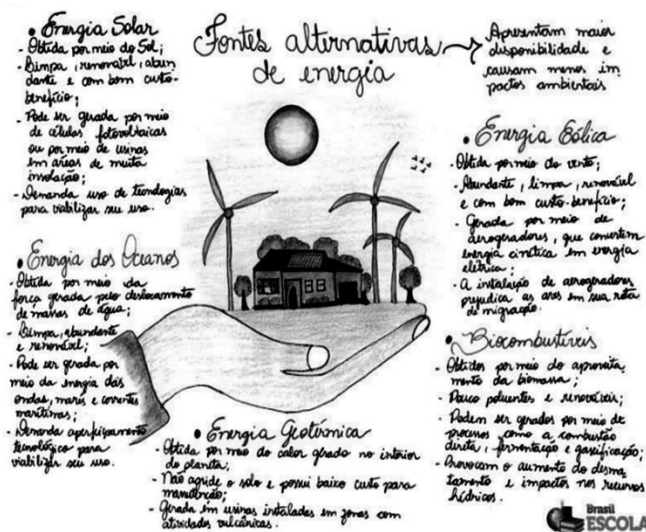 Fontes alternativas
de energia
Apresentam maior
disponibilidade e
causam menos im
pactos ambientais
• Energia Solar
- Obtida por meio do Sol;
- Limpa, renovável, abun
dante e com bom custo-
benefício;
- Pode ser gerada por meio
de células fotovoltaicas
ou por meio de usinas
em áreas de muita
insolação;
- Demanda uso de tecnologias
para viabilizar seu uso.
• Energia dos Oceanos
- Obtida por meio da
força gerada pelo deslocamento
de massas de água;
- Limpa, abundante
e renovável;
- Pode ser gerada por
meio da energia das
ondas, marés e correntes
marítimas;
- Demanda aperfeiçoamento
tecnológico para
viabilizar seu uso.
• Energia Geotérmica
- Obtida por meio do calor gerado no interior
do planeta;
- Não agride o solo e possui baixo custo para
manutenção;
- Gerada em usinas instaladas em zonas com
atividades vulcânicas.
• Energia Eólica
- Obtida por meio do vento;
- Abundante, limpa, renovável
e com bom custo-benefício;
- Gerada por meio de
aerogeradores, que convertem
energia cinética em energia
elétrica;
- A instalação de aerogeradores
prejudica as aves em sua rota
de migração.
• Biocombustíveis
- Obtidos por meio do aproveita
mento da biomassa;
- Pouco poluentes e renováveis;
- Podem ser gerados por meio de
processos como a combustão
direta, fermentação e gaseificação;
- Provocam o aumento do desma
tamento e impactos nos recursos
hídricos.
Brasil
ESCOLA